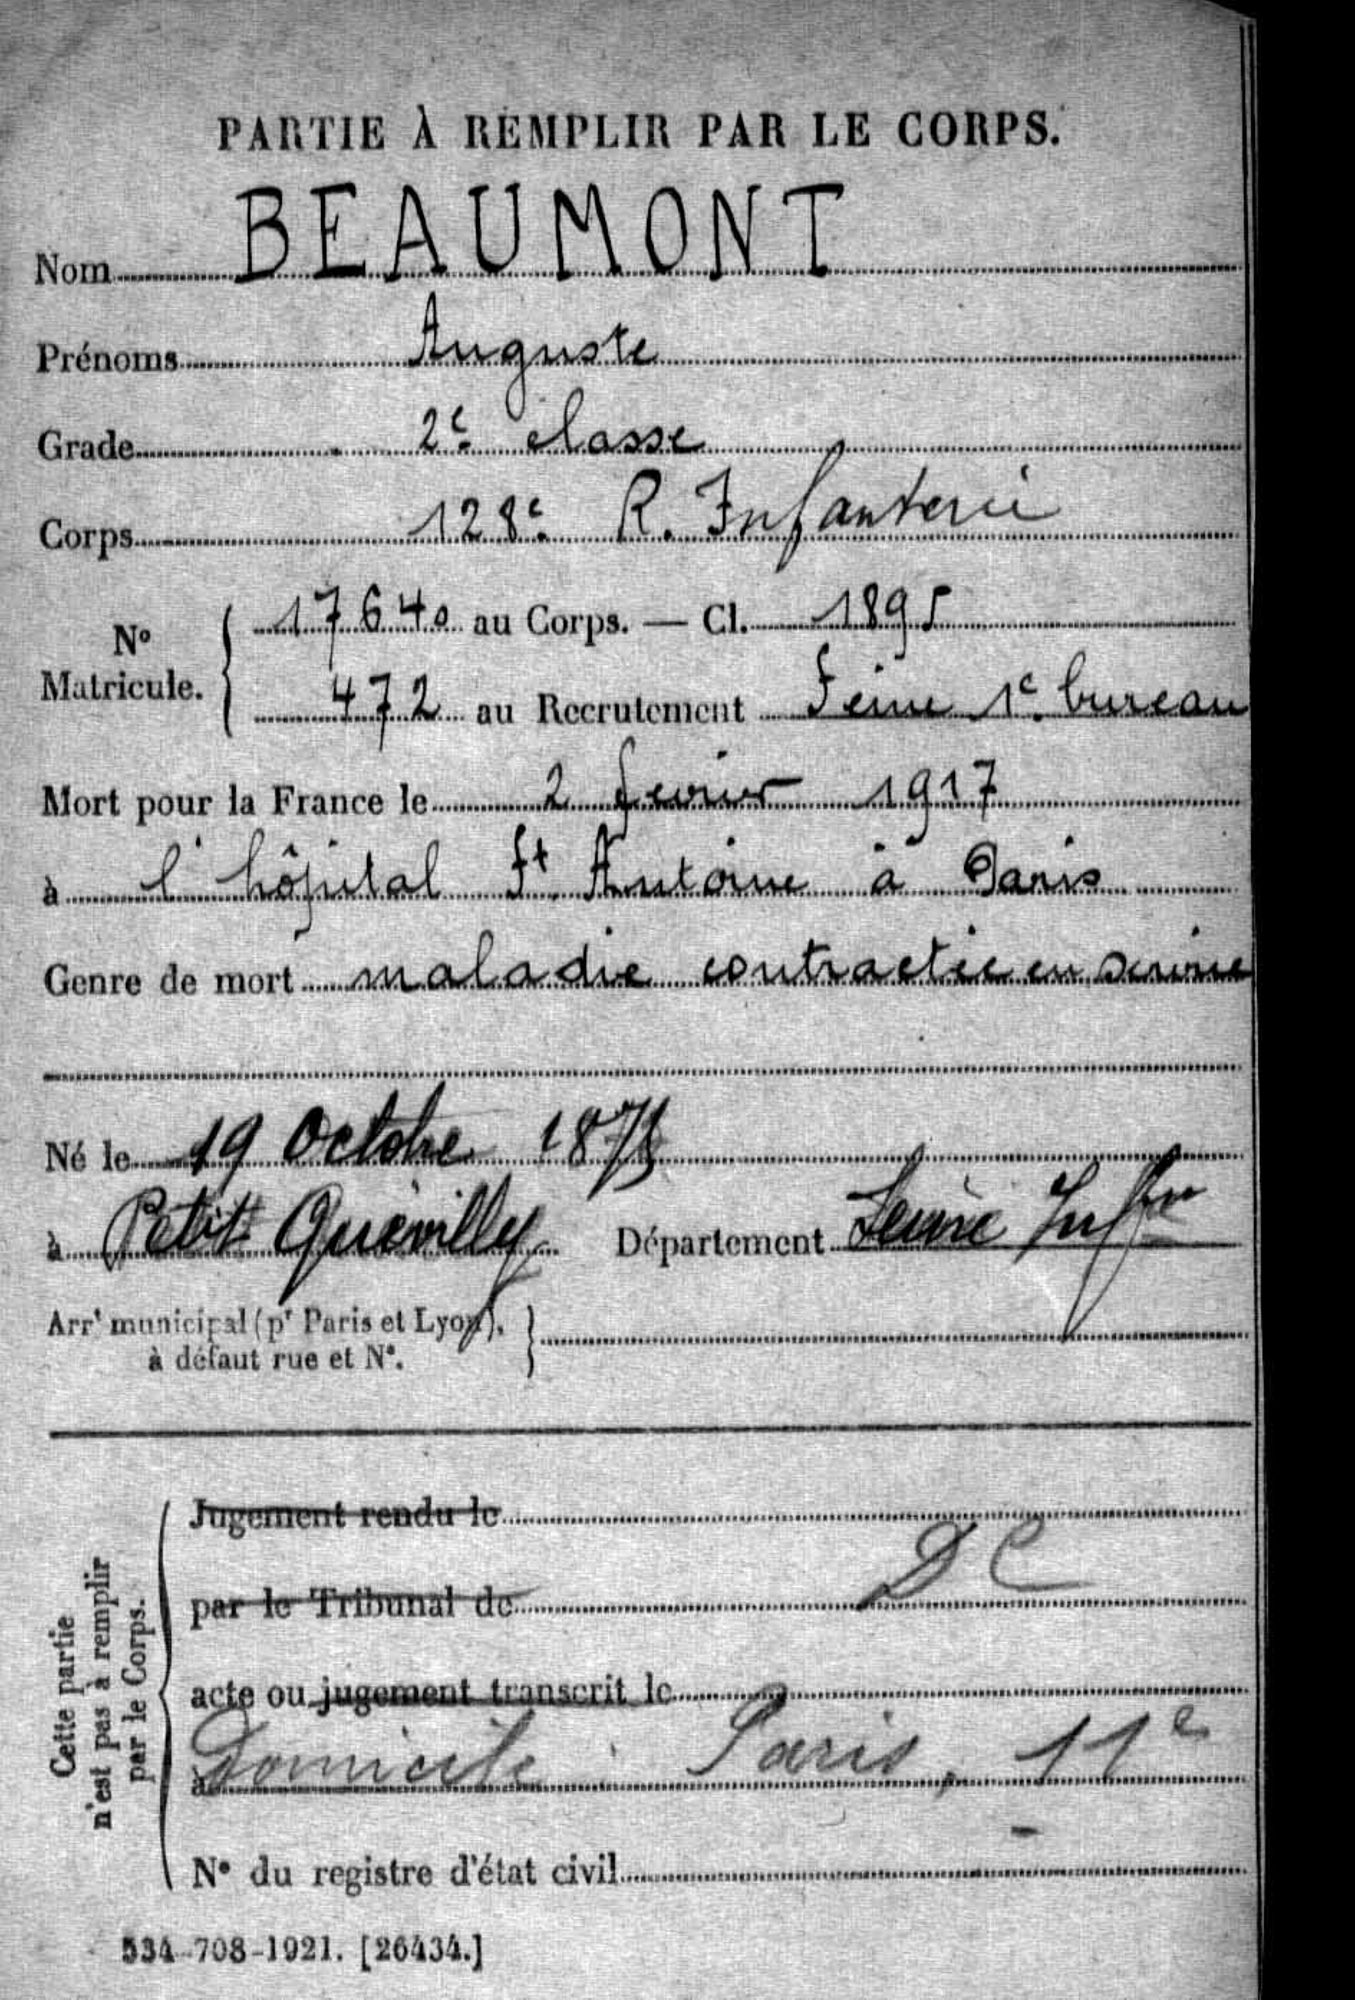 PARTIE À REMPLIR PAR LE CORPS.
Nom BEAUMONT
Prénoms Auguste
Grade 2e classe
Corps 128e R. Infanterie
No Matricule. 17640 au Corps. — Cl. 1895
472 au Recrutement Seine 1e bureau
Mort pour la France le 2 fevrier 1917
à l'hôpital St Antoine à Paris
Genre de mort maladie contractée en service
Né le 19 Octobre 1875
à Petit Quévilly Département Seine Infre
Arrt municipal (pr Paris et Lyon),
à défaut rue et No.
Cette partie
n'est pas à remplir
par le Corps.
Jugement rendu le
par le Tribunal de
DC
acte ou jugement transcrit le
à Domicile Paris, 11e
No du registre d'état civil
534-708-1921. [26434.]